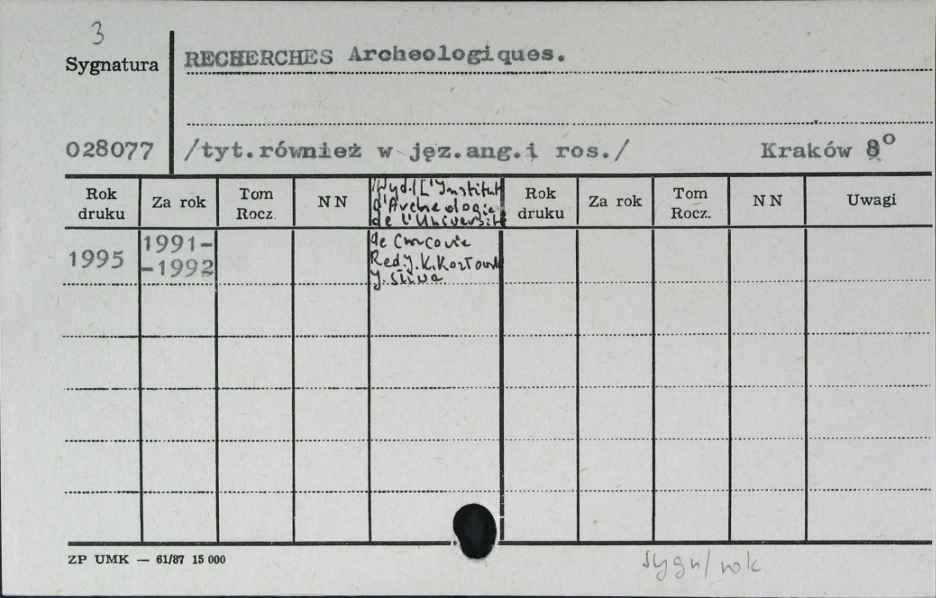 3
Sygnatura
RECHERCHES Archeologiques.
028077 /tyt.również w jęz.ang.i ros./ Kraków 8°
Rok druku Za rok Tom Rocz. NN Rok druku Za rok Tom Rocz. NN Uwagi
/Wyd./L'Institut
d'Archeologie
de l'Université
de Cracovie
Red J.K.Kozłowski
J.Śliwa
1995 1991-
-1992
ZP UMK — 61/87 15 000
sygn/rok